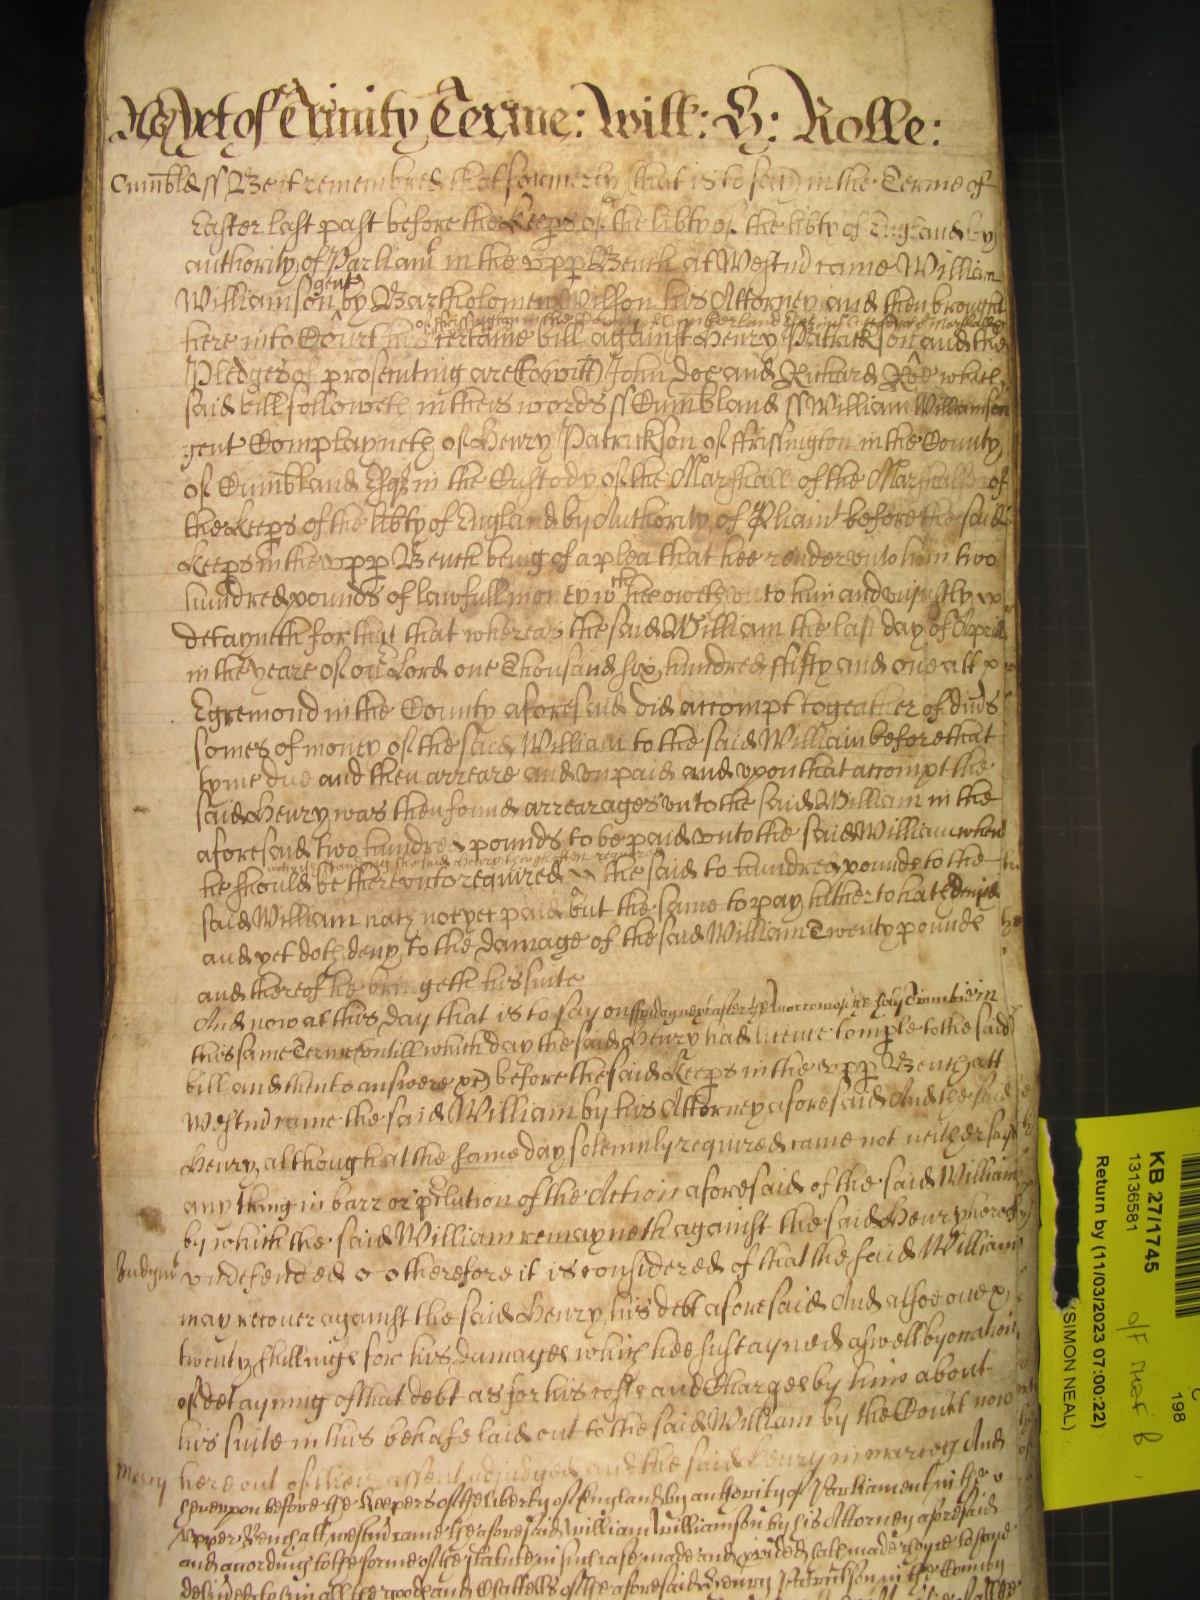 As yet of Trinity Terme: Will: B: Rolle:
Cumbld ss Be it remembred that formerly (that is to say) in the Terme of
Easter last past before the Keeps of the libty of the libty of England by
authority of Parliamt in the Upp Bench at Westm came William
Williamson gent by Bartholomew Wilson his Attorney and then brought
here into Court his certaine bill against Henry Patrickson and the
of Frissington in the County of Cumberland Esq in the
Pledges of prosecuting are (to witt) John Doe and Richard Roe which
said bill followeth in theis words ss Cumbland ss William Williamson
gent Complayneth of Henry Patrickson of ffrissington in the County
of Cumbland Esqr in the Custody of the Marshall of the Marshalls of
the Keeps of the libty of England by Authority of Pliamt before the said
Keeps in the upp Bench being of a plea that hee render unto him two
hundred pounds of lawfull money wch hee oweth unto him and uniustly
detayneth for that that whereas the said William the last day of Aprill
in the yeare of our Lord one Thousand six hundred ffifty and one att
Egremond in the County aforesaid did accompt togeather of divs
somes of money of the said William to the said William before that
tyme due and then arreare and unpaid and upon that accompt the
said Henry was then found arrearages unto the said William in the
aforesaid two hundred pounds to be paid unto the said William when
notwithstanding the said Henry though often required
he should be thereunto required the said to hundred pounds to the
said William hath not yet paid but the same to pay hitherto hath denied
and yet doth deny to the damage of the said William Twenty pounds
and thereof he bringeth his suite
And now at this day that is to say on ffryday next after the morrow of the holy Trinitie in
this same Terme (untill which day the said Henry had licence to imple to the said
bill and then to answere &c) before the said Keeps in the upp Bench att
Westm came the said William by his Attorney aforesaid And the said
Henry although at the same day solemnly required came not neither saith
any thing in barr or pclution of the Action aforesaid of the said William
by which the said William remayneth against the said Henry thereof
Iudgmt undefended therefore it is considered of that the said William
may recover against the said Henry his debt aforesaid And alsoe
twenty shillings for his damages which hee sustayned aswell by occation
of detayning of that debt as for his costs and Charges by him about
his suite in his behalfe laid out to the said William by the Court now
Mercy here out of their assent adiudged and the said Henry in mercy And
hereupon before the Keepers of the liberty of England by authority of Parliament in the
Upper Bench att Westm came the aforesaid William Williamson by his Attorney aforesaid
and according to the forme of the statute in such case made and pvided hath made choyce to have
delivered to him all the goods and Chattells of the aforesaid Henry Patrickson in the County
KB 27/1745
13136581
Return by (11/03/2023 07:00:22)
(SIMON NEAL)
198